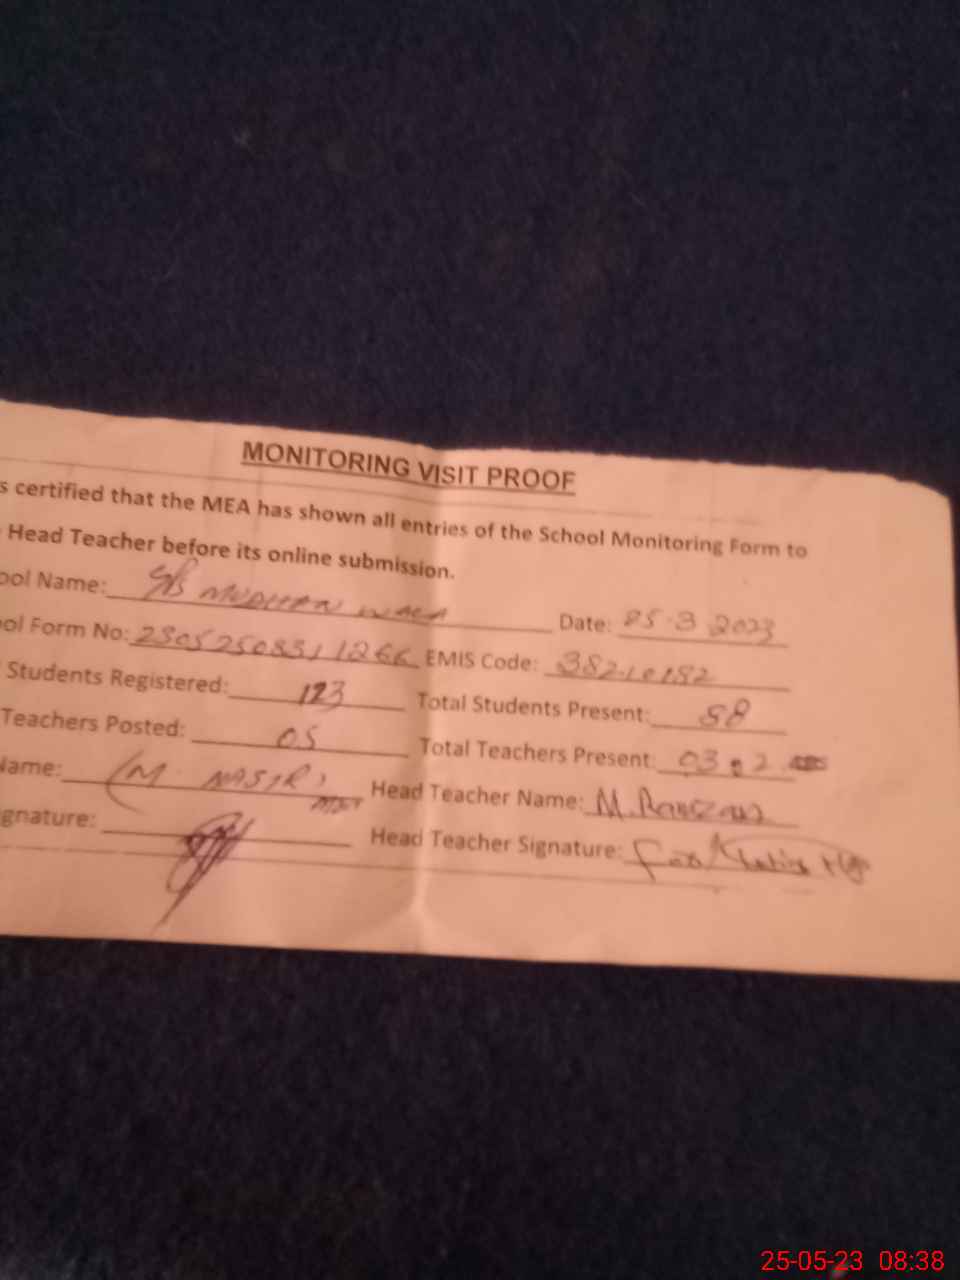 MONITORING VISIT PROOF
s certified that the MEA has shown all entries of the School Monitoring Form to
Head Teacher before its online submission.
ool Name: Date: 25-3 2023
ool Form No: 23052508311266 EMIS Code: 38210192
Students Registered: 123 Total Students Present: 58
Teachers Posted: 05 Total Teachers Present: 03
Name: (M. NASIR) Head Teacher Name: M.
gnature: Head Teacher Signature:
25-05-23 08:38